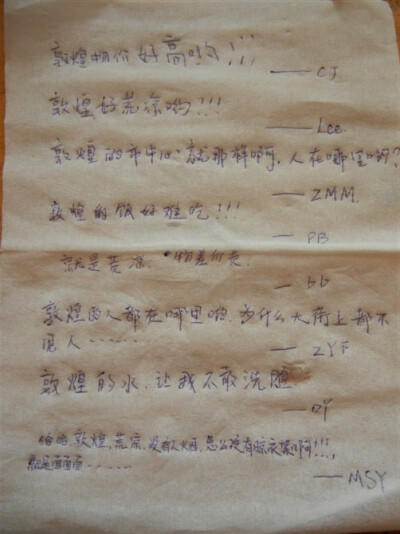 敦煌物价好高哟!!!
——CJ
敦煌好荒凉哟!!!
——Lce.
敦煌的市中心就那样啊,人在哪里啊?
——ZMM.
敦煌的饭好难吃!!!
——PB
就是荒凉. 物差价贵.
—bb
敦煌的人都在哪里的.为什么大街上都不
见人……
——ZYF
敦煌的水,让我不敢洗脸

哈哈,敦煌,荒凉,没有人烟,怎么没有晾衣架啊!!!,
就是面面面……
——MSY